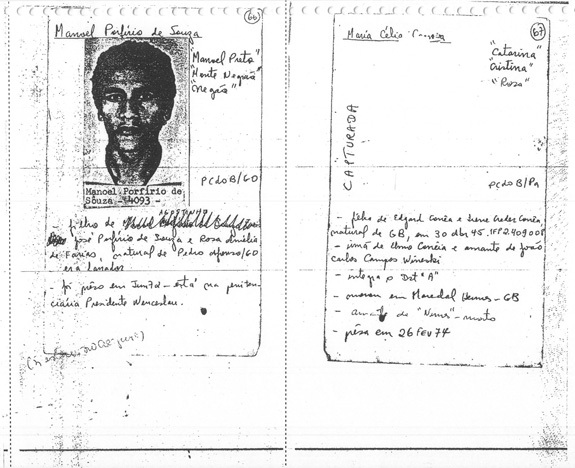 66
Manoel Porfirio de Souza
"Manoel Preto"
"Monte Negrão"
"Negrão"
PCdoB/GO
Manoel Porfirio de
Souza - 4093 -
- filho de
José Porfirio de Souza e Rosa Amélia
de Farias, natural de Pedro Afonso/GO
era lavrador
- foi prêso em Jun7 - está na peniten-
ciária Presidente Wenceslau.
67
Maria Célia Corrêa
"Catarina"
"Cristina"
"Rosa"
CAPTURADA
PCdoB/Pa
- filha de Edgard Corrêa e Irene Corrêa,
natural de GB, em 30 abr 45. IFP
- irmã de Elmo Corrêa e amante de João
Carlos Campos Wisneski
- integra o Dst "A"
- morou em Marechal Hermes - GB
- amante de "Nunes" - morto
- prêsa em 26 FEV 74